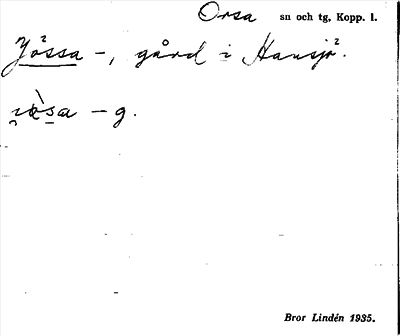 Orsa sn och tg, Kopp. l.
Jössa –, gård i Hansjö².
– g.
Bror Lindén 1935.